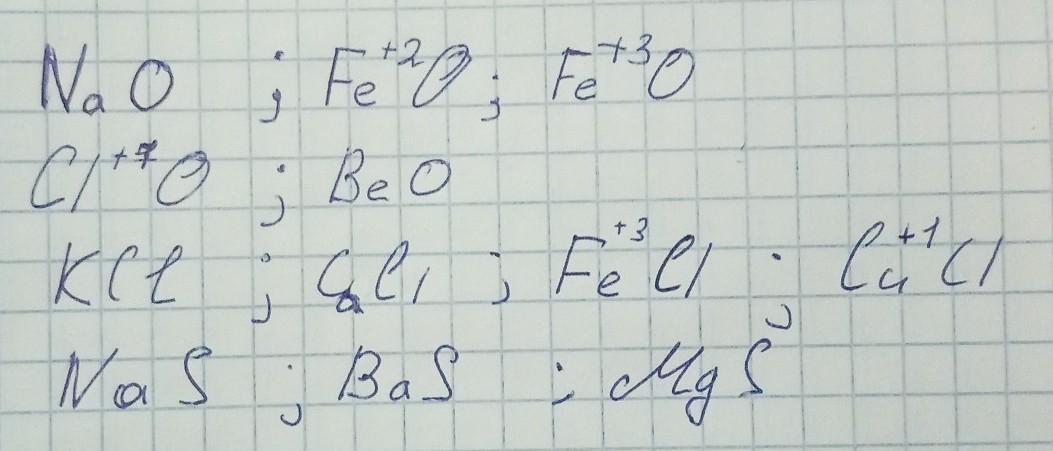 NaO ; Fe⁺²O ; Fe⁺³O
Cl⁺⁷O ; BeO
KCl ; CaCl ; Fe⁺³Cl ; Cu⁺¹Cl
NaS ; BaS ; MgS